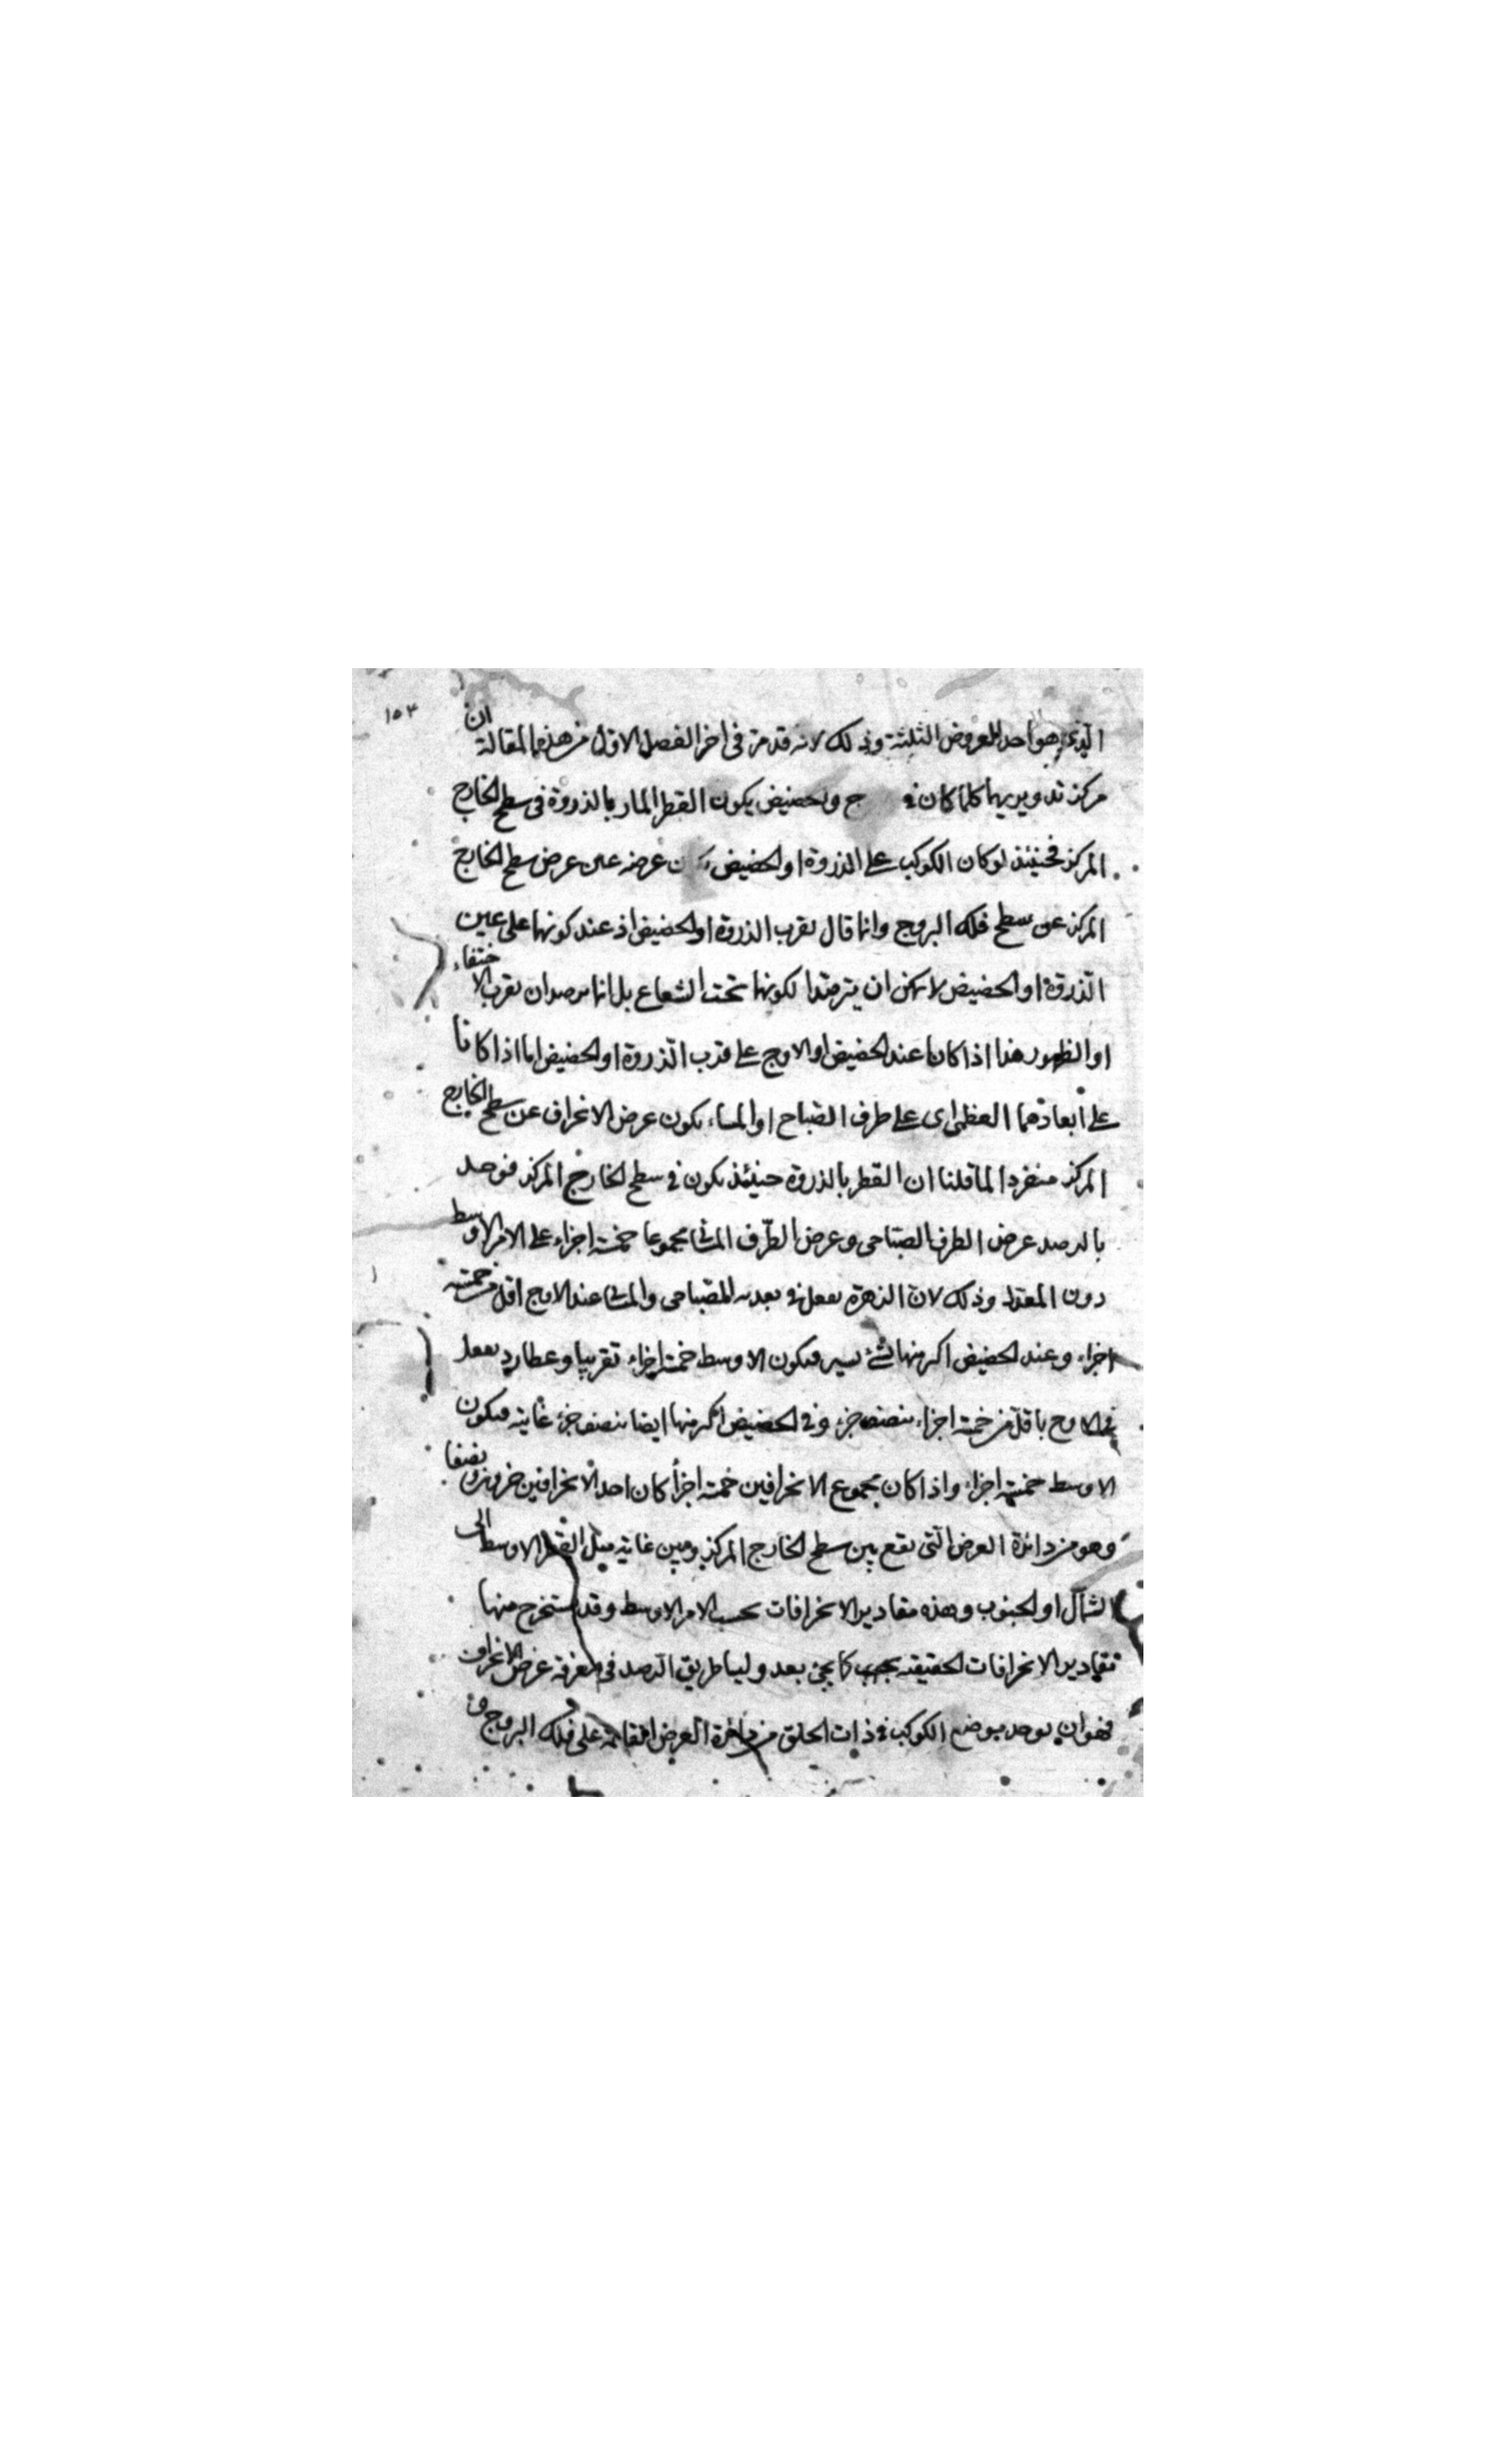 ١٥٣
الذى هو احد العروض الثلثة وذلك لانه قد مر فى اخر الفصل الاول من هذه المقالة ان
مركز تدويريهما كلما كان فى ج والحضيض يكون القطر المار بالذروة فى سطح الخارج
المركز فحينئذ لو كان الكوكب على الذروة او الحضيض ن عرضه عين عرض سطح الخارج
المركز عن سطح فلك البروج وانما قال بقرب الذروة او الحضيض اذ عند كونهما على عين
الذروة او الحضيض لا يمكن ان يترصدا لكونهما تحت الشعاع بل انما يرصدان بقرب الاختفاء
او الظهور هذا اذا كانا عند الحضيض او الاوج على قرب الذروة او الحضيض اما اذا كانا
على ابعادهما العظمى اى على طرف الصباح او المساء يكون عرض الانحراف عن سطح الخارج
المركز منفردا لما قلنا ان القطر بالذروة حينئذ يكون فى سطح الخارج المركز فوجد
بالرصد عرض الطرف الصباحى وعرض الطرف المسائى مجموعا خمسة اجزاء على الامر الاوسط
دون المعتدل وذلك لان الزهرة يفعل فى بعديه الصباحى والمسائى عند الاوج اقل من خمسة
اجزاء وعند الحضيض اكثر منها بشئ يسير فيكون الاوسط خمسة اجزاء تقريبا وعطارد يفعل
فى الاوج باقل من خمسة اجزاء بنصف جزء وفى الحضيض اكثر منها ايضا بنصف جزء غايته فيكون
الاوسط خمسة اجزاء واذا كان مجموع الانحرافين خمسة اجزأ كان احد الانحرافين جزوين ونصفا
وهو من دائرة العرض التى يقع بين سطح الخارج المركز وبين غاية ميل القطر الاوسط الى
الشمال او الجنوب وهذه مقادير الانحرافات بحسب الامر الاوسط وقد يستخرج منها
مقادير الانحرافات الحقيقية كما يجئ بعد طريق الرصد فى معرفة عرض الانحراف
فهو ان يوجد موضع الكوكب فى ذات الحلق من دائرة العرض القائمة على فلك البروج